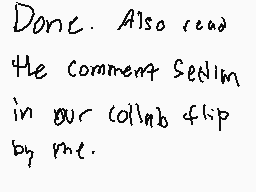 Done. Also read
the comment
in our collab flip
by me.